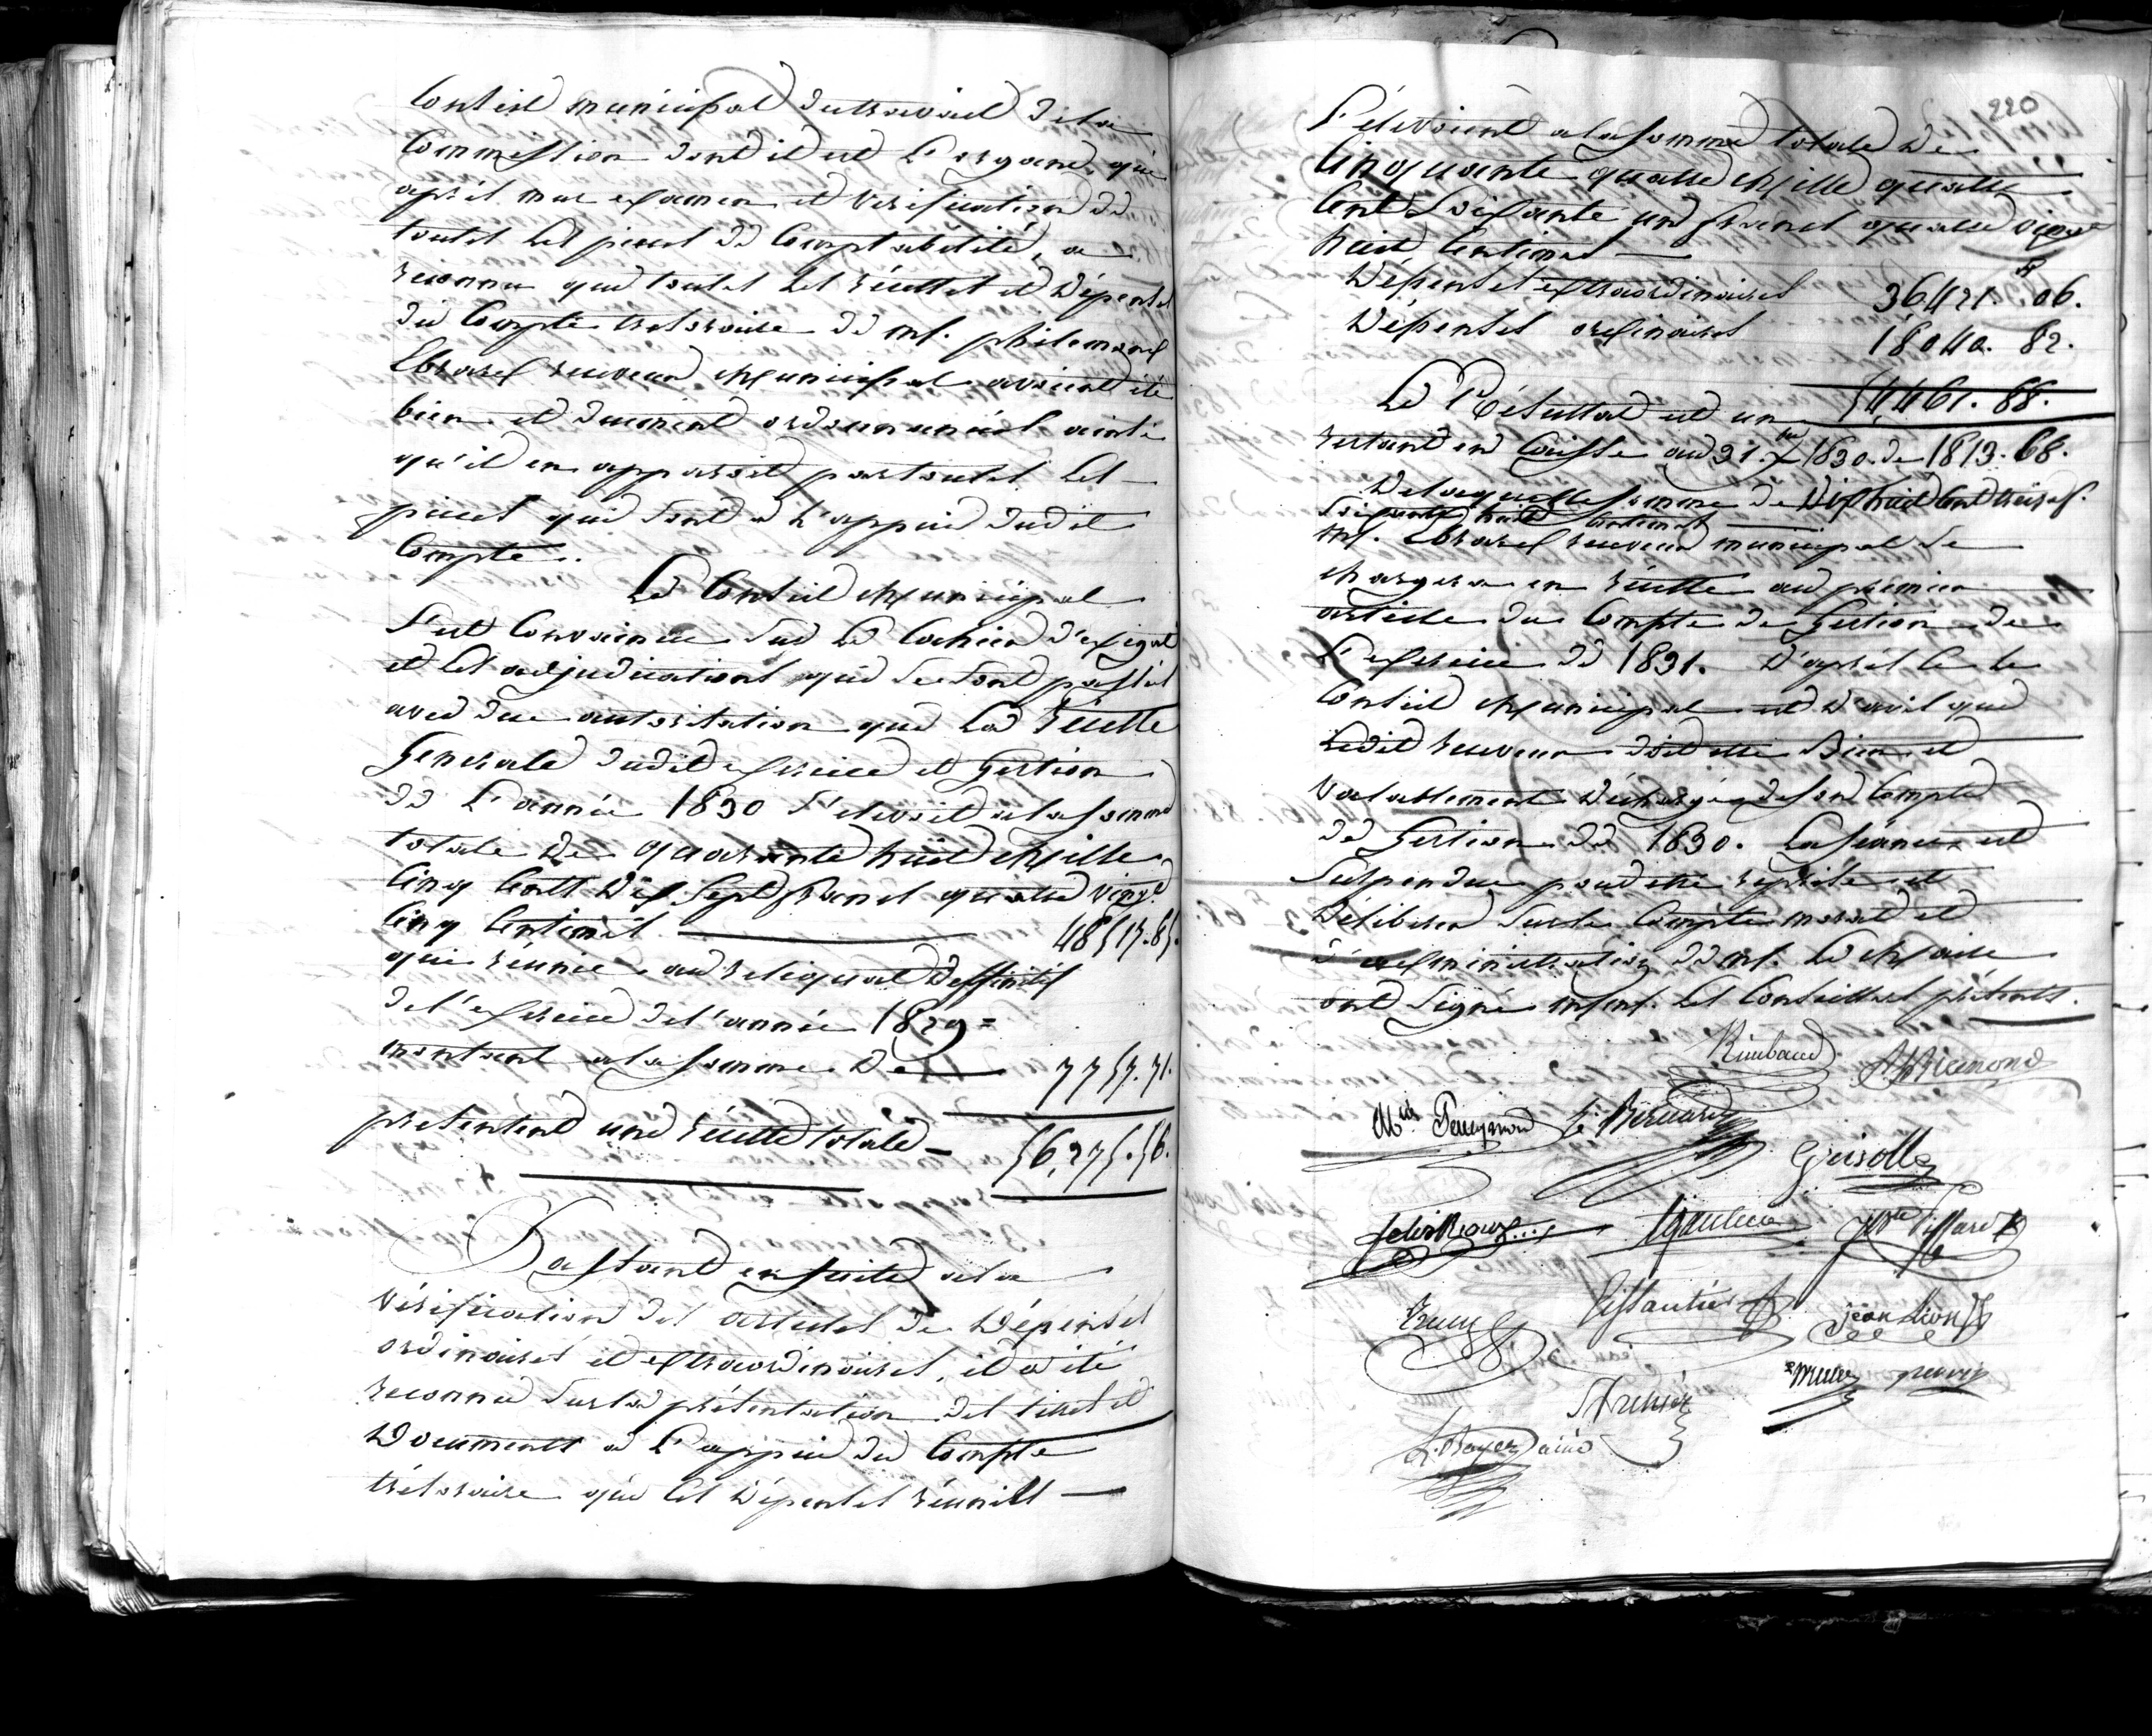 Conseil municipal du travail de la
Commission dont il est l'organe, que
après mur examen et verification de
toutes les pieces de Comptabilité, a
reconnu que toutes les récettes et dépenses
du Compte trésoraire de mr. philemond
Ebrard receveur Municipal avoient été
bien et duement ordonnancés ainsi
qu'il en apparoit par toutes les
pieces qui sont à l'appui dudit
Compte.
Le Conseil Municipal
s'est Convaincu sur le Cahier d'exigal
et les adjudications qui se sont passées
avec due autorisation que la récette
Generale dudit exercice et Gestion
de l'année 1830 s'elevoit a la somme
totale de quarante huit Mille
Cinq Cents dix sept francs quatre vingt
Cinq Centimes 48517.85.
qui réunie au reliquat deffinitif
de l'exercice de l'année 1829 =
montant a la somme de 7757.71.
présentent une récette totale 56,275.56.
Passant ensuite a la
vérification des articles de dépenses
ordinaires et extraordinaires, il a été
reconnu sur la présentation des titres et
documents a l'appui du Compte
trésoraire que les dépenses réunies
220
s'elevoient a la somme totale de
Cinquante quatre Mille quatre
Cent soixante un francs quatre vingt
huit Centimes
Dépenses extraordinaires 36,421.06.
Dépenses ordinaires 18040.82.
54,461.88.
Le Résultat est un
restant en Caisse au 31. Xbre 1830. de 1813.68.
De laquelle somme de dix huit Cent treize f.
soixante huit Centimes
mr. Ebrard receveur municipal se
chargera en récette au premier
article du Compte de Gestion de
l'exercice de 1831. D'après ce le
Conseil Municipal est d'avis que
ledit receveur doit etre bien et
valablement déchargé de son Compte
de Gestion de 1830. La séance est
suspendue pour etre reprise et
délibérer sur le Compte moral et
d'administration de mr. le Maire
ont signé mrs. les Conseillers présents.
Rimbaud
Bernard
Grisolle
jean Lion
ainé